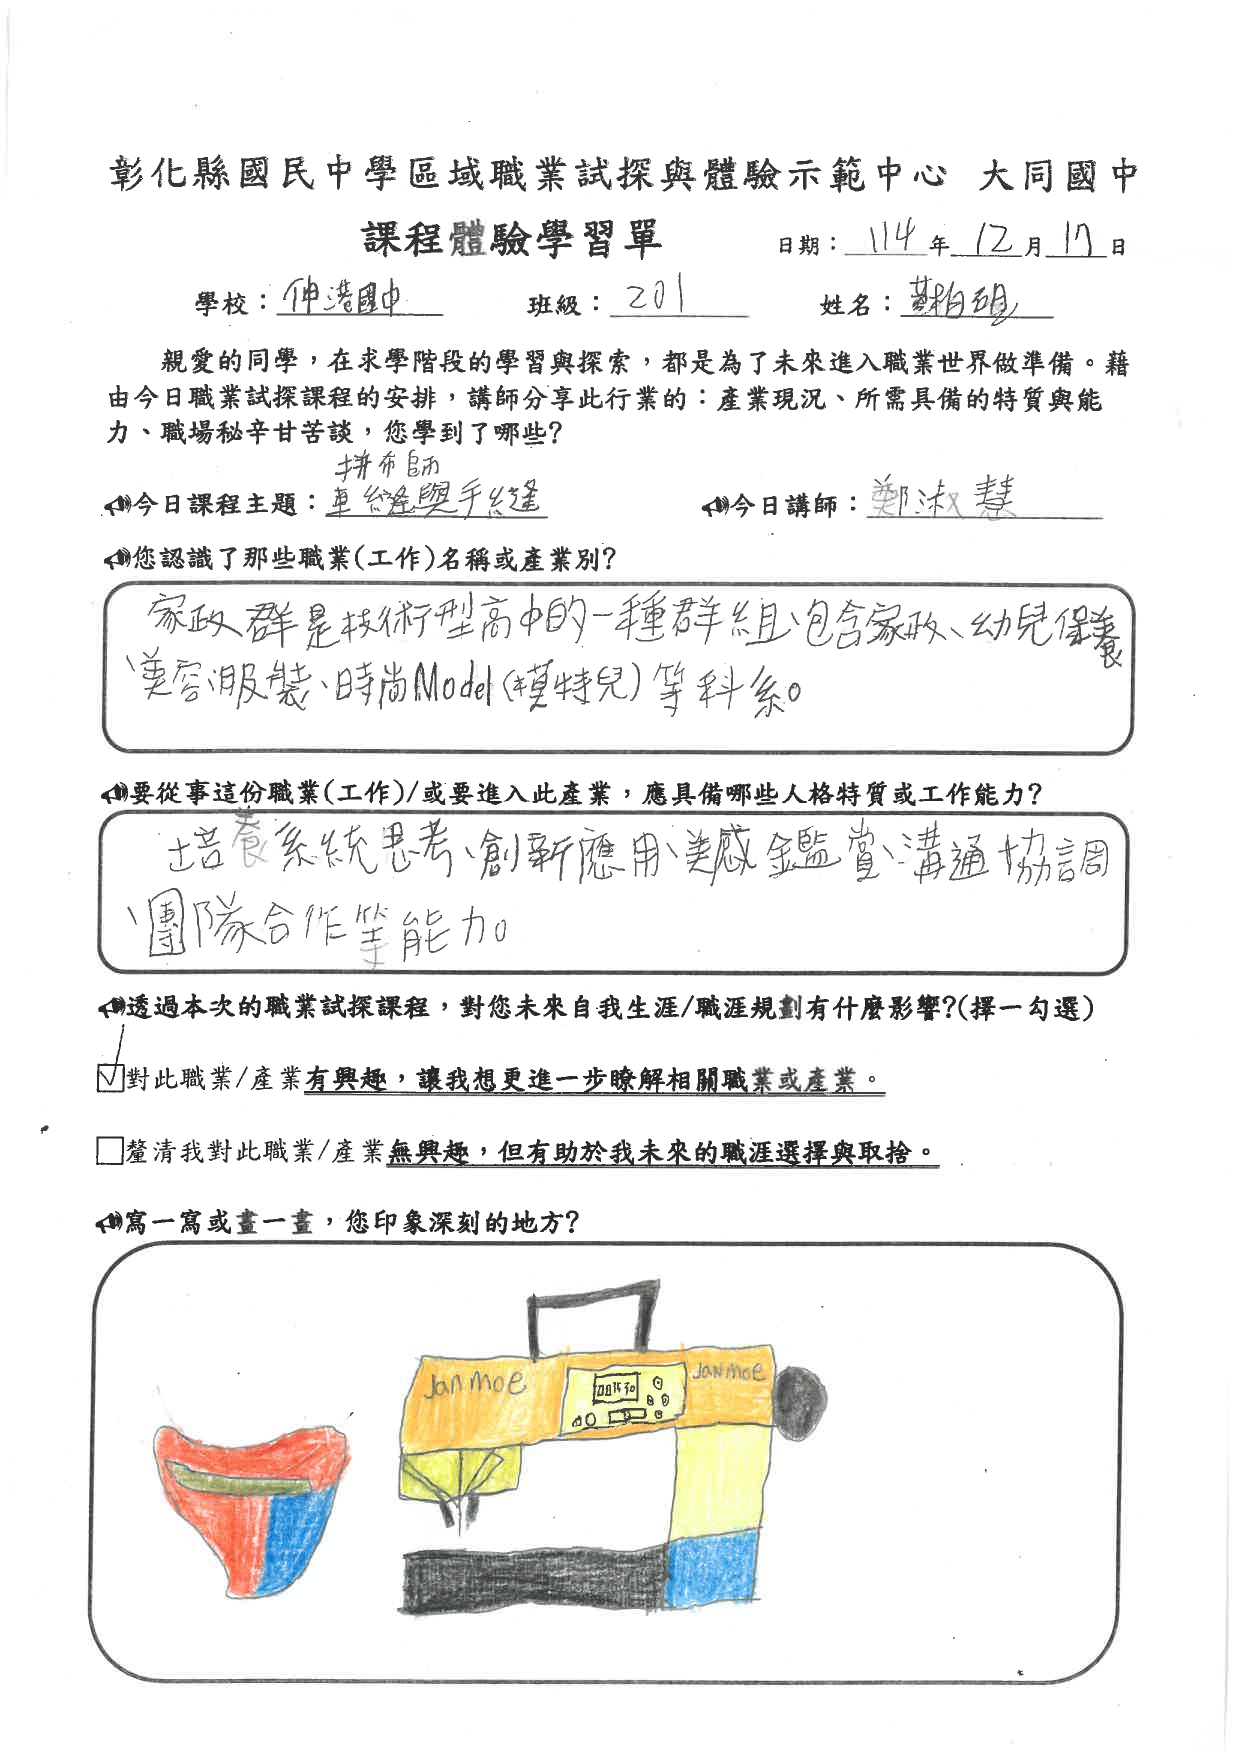 彰化縣國民中學區域職業試探與體驗示範中心 大同國中
課程體驗學習單
日期：114年12月17日
學校：伸港國中 班級：201 姓名：黃柏硯
親愛的同學，在求學階段的學習與探索，都是為了未來進入職業世界做準備。藉
由今日職業試探課程的安排，講師分享此行業的：產業現況、所需具備的特質與能
力、職場秘辛甘苦談，您學到了哪些?
拼布師
今日課程主題：車縫與手縫 今日講師：鄭淑慧
您認識了那些職業(工作)名稱或產業別?
家政群是技術型高中的一種群組、包含家政、幼兒保養
、美容、服裝、時尚Model(模特兒)等科系。
要從事這份職業(工作)/或要進入此產業，應具備哪些人格特質或工作能力?
培養系統思考、創新應用、美感鑑賞、溝通協調
、團隊合作等能力。
透過本次的職業試探課程，對您未來自我生涯/職涯規劃有什麼影響?(擇一勾選)
☑對此職業/產業有興趣，讓我想更進一步瞭解相關職業或產業。
□釐清我對此職業/產業無興趣，但有助於我未來的職涯選擇與取捨。
寫一寫或畫一畫，您印象深刻的地方?
Janmoe Janmoe